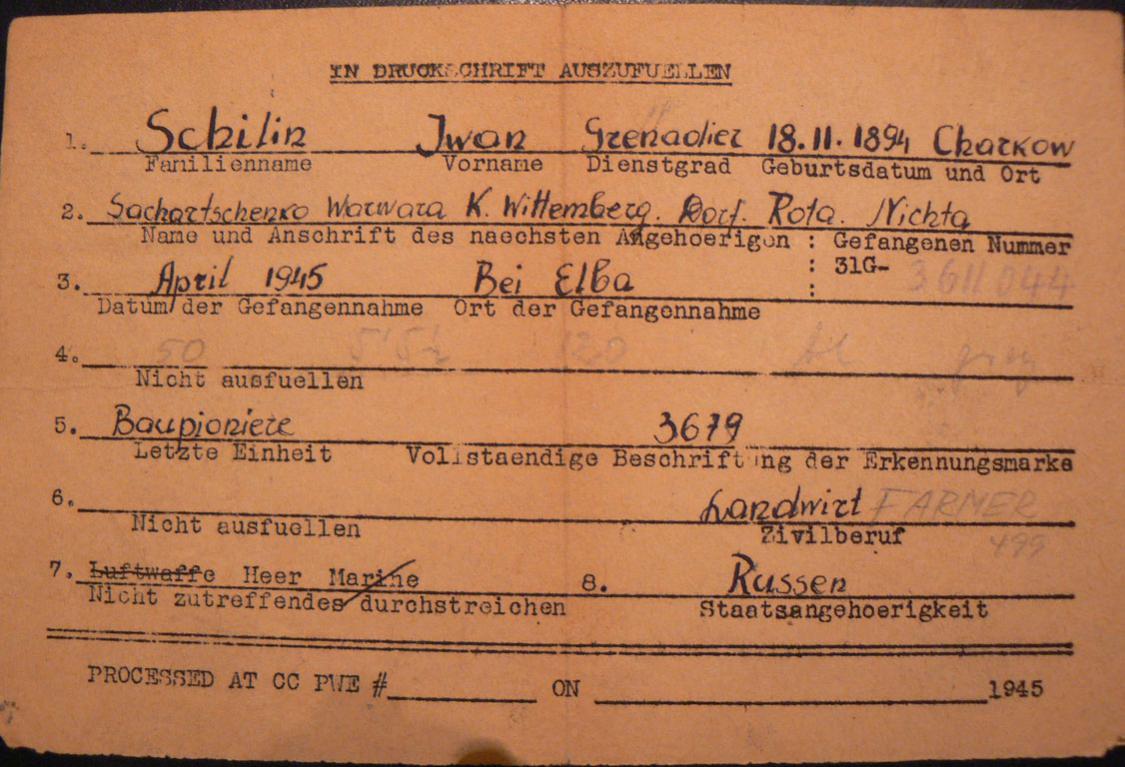 IN DRUCKSCHRIFT AUSZUFUELLEN
1. Schilin Jwan Grenadier 18.11.1894 Charkow
Familienname Vorname Dienstgrad Geburtsdatum und Ort
2. Sachartschenko Warwara K. Wittemberg. Dorf. Rota. Nichta
Name und Anschrift des naechsten Angehoerigen : Gefangenen Nummer
3. April 1945 Bei Elba : 31G- 3611044
Datum der Gefangennahme Ort der Gefangennahme :
4. 50 120
Nicht ausfuellen
5. Baupioniere 3679
Letzte Einheit Vollstaendige Beschriftung der Erkennungsmarke
6. Landwirt FARMER
Nicht ausfuellen Zivilberuf 499
7. Luftwaffe Heer Marine 8. Russen
Nicht zutreffendes durchstreichen Staatsangehoerigkeit
PROCESSED AT CC PWE # ON 1945